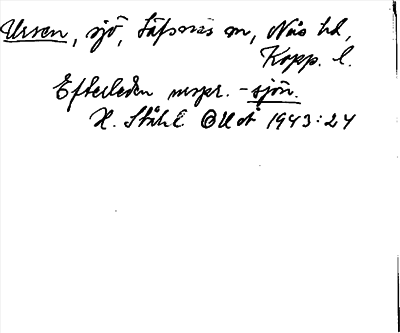 Ursen, sjö, Säfsnäs sn, Nås hd,
Kopp. l.
Efterleden urspr. -sjön.
H. Ståhl OUoÅ 1943:24